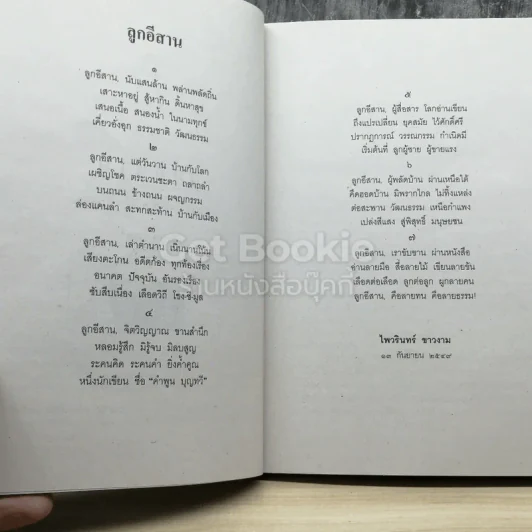 ลูกอีสาน
๑
ลูกอีสาน, นับแสนล้าน พล่านพลัดถิ่น
เสาะหาอยู่ สู้หากิน ดิ้นหาสุข
เสนอเนื้อ สนองน้ำ ในนามทุกข์
เคี่ยวยั่งอุก ธรรมชาติ วัฒนธรรม
๒
ลูกอีสาน, แต่วันวาน บ้านกับโลก
เผชิญโชค ตระเวนชะตา ถลาถลำ
บนถนน ข้างถนน ผจญกรรม
ล่องแคนลำ สะทกสะท้าน บ้านกับเมือง
๓
ลูกอีสาน, เล่าตำนาน เนิ่นนานนัน
เสียงตะโกน อดีตก้อง ทุกท้องเรื่อง
อนาคต ปัจจุบัน อันรองเรือง
ซับสืบเนื่อง เลือดวิถี โขง-ชี-มูล
๔
ลูกอีสาน, จิตวิญญาณ ขานสำนึก
หลอมรู้สึก มิรู้จบ มิลบสูญ
ระคนคิด ระคนคำ ยิ่งค้ำคูณ
หนึ่งนักเขียน ชื่อ "คำพูน บุญทวี"
๕
ลูกอีสาน, ผู้สื่อสาร โลกอ่านเขียน
ถึงแปรเปลี่ยน ยุคสมัย ไว้ศักดิ์ศรี
ปรากฏการณ์ วรรณกรรม กำเนิดมี
เริ่มต้นที่ ลูกผู้ชาย ผู้ชายแรง
๖
ลูกอีสาน, ผู้พลัดบ้าน ผ่านเหนือใต้
คืดฮอดบ้าน มิพรากไกล ไม่ทิ้งแหล่ง
ต่อสะพาน วัฒนธรรม เหนือกำแพง
เปล่งสีแสง สู่พิสุทธิ์ มนุษยชน
๗
ลูกอีสาน, เราขับขาน ผ่านหนังสือ
อ่านลายมือ สื่อลายไม้ เขียนลายขัน
เลือดต่อเลือด ลูกต่อลูก ผูกลายคน
ลูกอีสาน, คือลายทน คือลายธรรม!
ไพวรินทร์ ขาวงาม
๑๓ กันยายน ๒๕๔๙
Get Bookie
ร้านหนังสือบุ๊คกี้